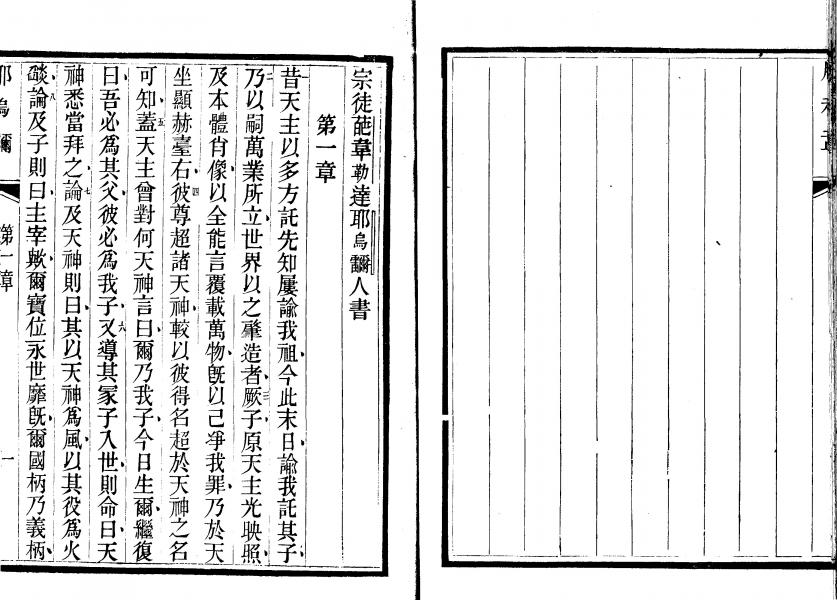 宗徒葩韋勒達耶烏爾人書
第一章
一昔天主以多方託先知屢諭我祖今此末日諭我託其子
二乃以嗣萬業所立世界以之肇造者三厥子原天主光映照
及本體肖像以全能言覆載萬物旣以己爭我罪乃於天
坐顯赫臺右四彼尊超諸天神較以彼得名超於天神之名
可知五蓋天主曾對何天神言曰爾乃我子今日生爾繼復
曰吾必爲其父彼必爲我子六又導其冢子入世則命曰天
神悉當拜之七論及天神則曰其以天神爲風以其役爲火
燄八論及子則曰主宰歟爾寶位永世靡旣爾國柄乃義柄
耶烏 第一章 一